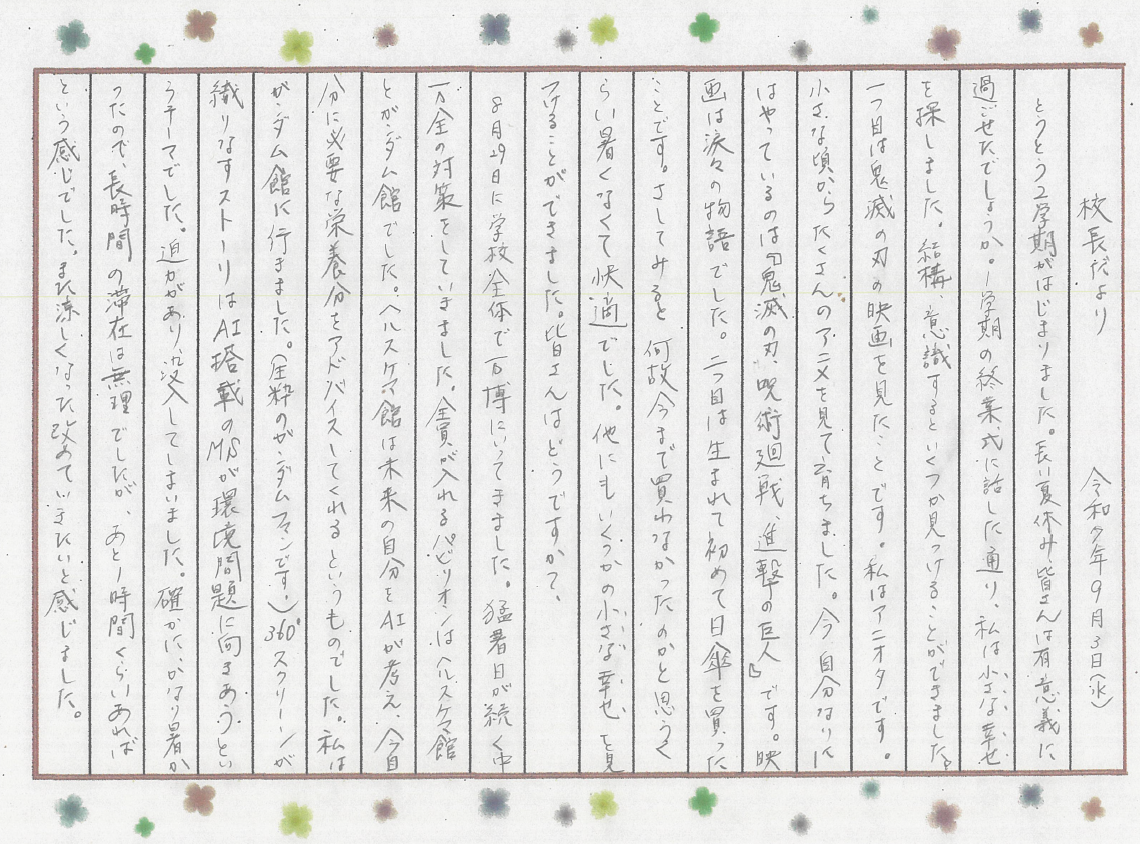 校長だより　令和7年9月3日(水)
とうとう2学期がはじまりました。長い夏休み、皆さんは有意義に
過ごせたでしょうか。1学期の終業式に話した通り、私は小さな幸せ
を探しました。結構、意識するといくつか見つけることができました。
一つ目は鬼滅の刃の映画を見たことです。私はアニオタです。
小さな頃からたくさんのアニメを見て育ちました。今、自分なりに
はやっているのは『鬼滅の刃、呪術廻戦、進撃の巨人』です。映
画は涙々の物語でした。二つ目は生まれて初めて日傘を買った
ことです。さしてみると、何故今まで買わなかったのかと思うく
らい暑くなくて快適でした。他にもいくつかの小さな幸せを見
つけることができました。皆さんはどうですか?
8月29日に学校全体で万博にいってきました。猛暑日が続く中
万全の対策をしていきました。全員が入れるパビリオンはヘルスケア館
とガンダム館でした。ヘルスケア館は未来の自分をAIが考え、今自
分に必要な栄養分をアドバイスしてくれるというものでした。私は
ガンダム館に行きました。(生粋のガンダムファンです。)360°スクリーンが
織りなすストーリーはAI搭載のMSが環境問題に向きあうとい
うテーマでした。迫力があり没入してしまいました。確かに、かなり暑か
ったので、長時間の滞在は無理でしたが、あと1時間くらいあれば
という感じでした。また涼しくなった改めていきたいと感じました。